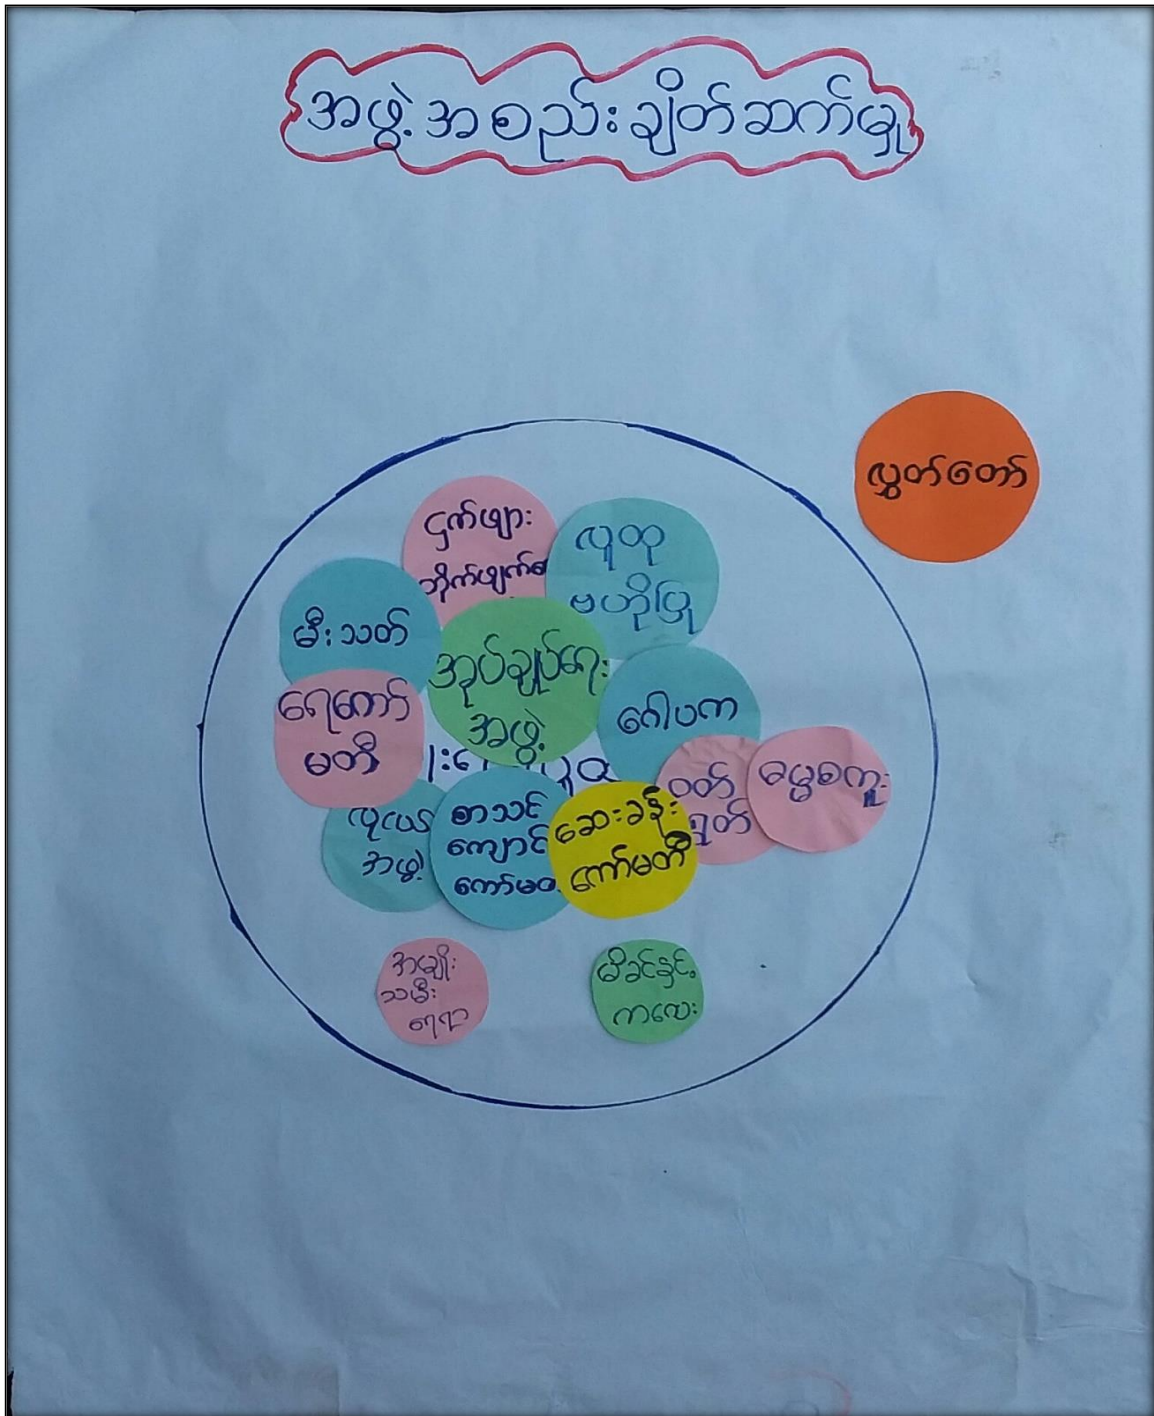 အဖွဲ့အစည်းချိတ်ဆက်မှု
လွှတ်တော်
ငှက်ဖျား
တိုက်ဖျက်ရေး
လူထု
ဗဟိုပြု
မီးသတ်
အုပ်ချုပ်ရေး
အဖွဲ့
ရေကော်
မတီ
ဂေါပက
ဝတ်
ရွတ်
ဓမ္မစကူး
လူငယ်
အဖွဲ့
စာသင်
ကျောင်း
ကော်မတီ
ဆေးခန်း
ကော်မတီ
အမျိုး
သမီး
ရေးရာ
မိခင်နှင့်
ကလေး